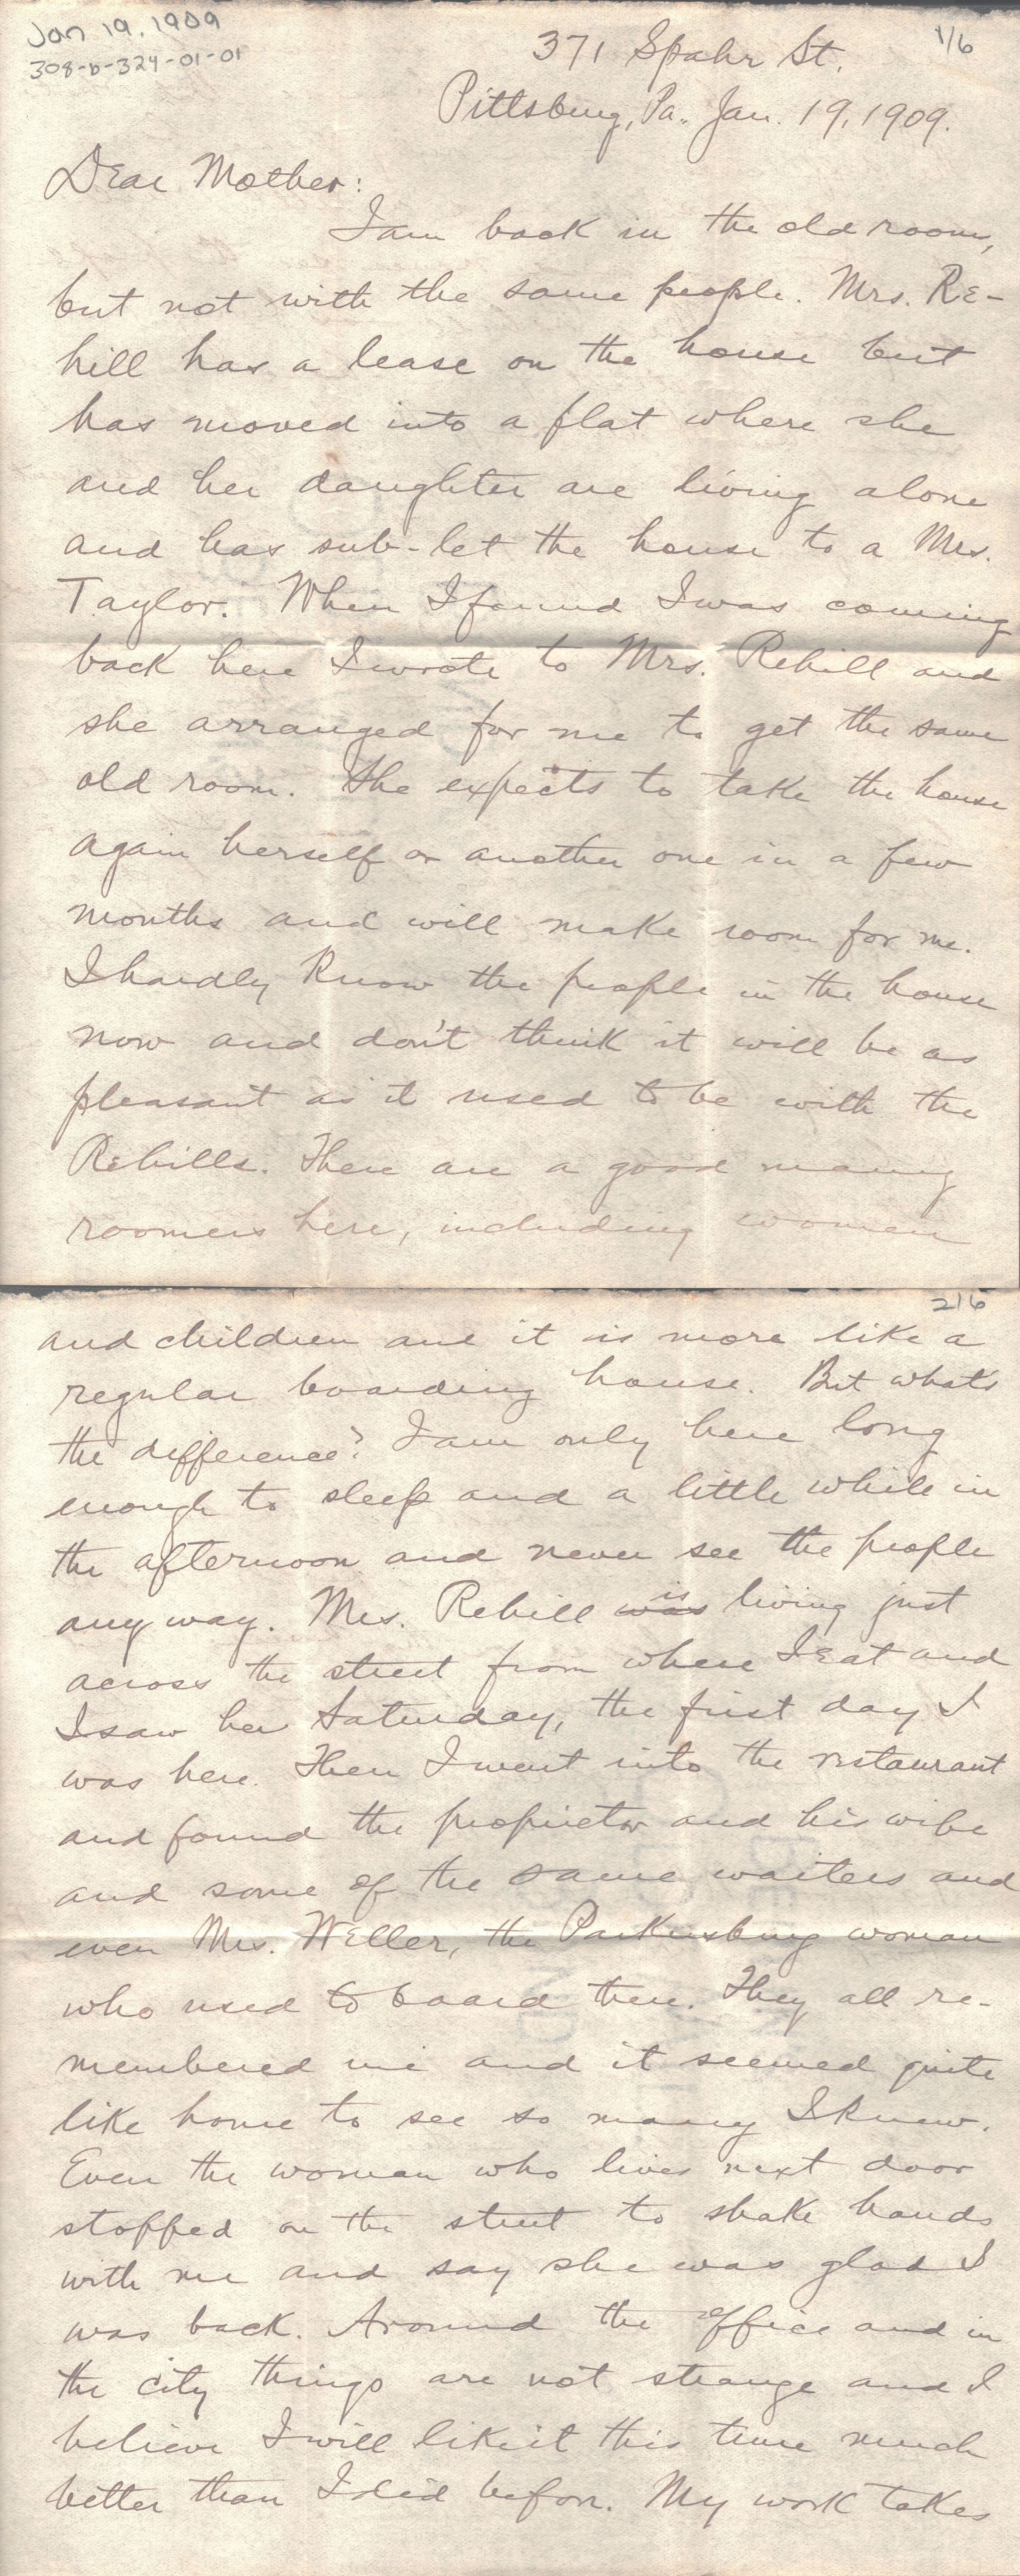 Jan 19, 1909
308-b-324-01-01
1/6
371 Spahr St.
Pittsburg, Pa. Jan. 19, 1909.
Dear Mother:
I am back in the old room,
but not with the same people. Mrs. Re-
hill has a lease on the house but
has moved into a flat where she
and her daughter are living alone
and has sub-let the house to a Mrs.
Taylor. When I found I was coming
back here I wrote to Mrs. Rehill and
she arranged for me to get the same
old room. She expects to take the house
again herself or another one in a few
months and will make room for me.
I hardly know the people in the house
now and don't think it will be as
pleasant as it used to be with the
Rehills. There are a good many
roomers here, including women
2/6
and children and it is more like a
regular boarding house. But whats
the difference? I am only here long
enough to sleep and a little while in
the afternoon and never see the people
any way. Mrs. Rehill was is living just
across the street from where I eat and
I saw her Saturday, the first day I
was here. Then I went into the restaurant
and found the proprietor and his wife
and some of the same waiters and
even Mrs. Weller, the Parkersburg woman
who used to board there. They all re-
membered me and it seemed quite
like home to see so many I knew.
Even the woman who lives next door
stopped on the street to shake hands
with me and say she was glad I
was back. Around the office and in
the city things are not strange and I
believe I will like it this time much
better than I did before. My work takes